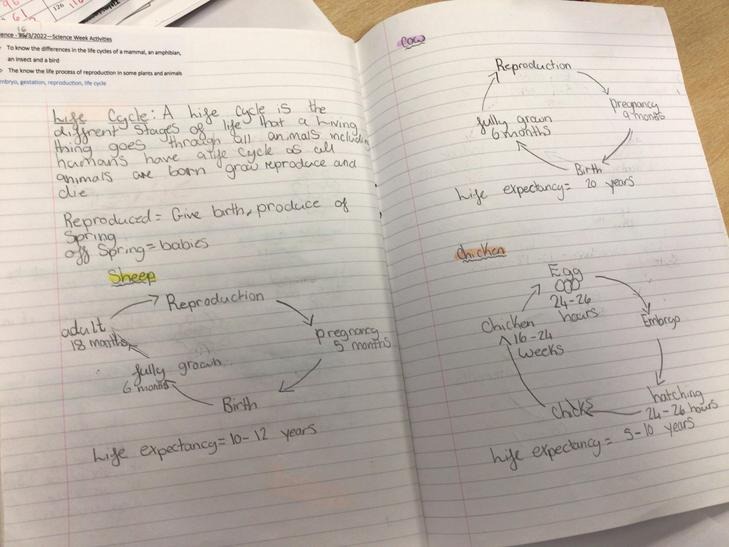 ence - 16/3/2022—Science Week Activities
To know the differences in the life cycles of a mammal, an amphibian,
an insect and a bird
The know the life process of reproduction in some plants and animals
mbryo, gestation, reproduction, life cycle
Life Cycle: A Life Cycle is the
different stages of life that a living
thing goes through all animals includin
humans have a life cycle as all
animals are born grow reproduce and
die
Reproduced = Give birth, produce of
Spring
off Spring = babies
Sheep
Reproduction
pregnancy
5 months
Birth
fully grown
6 months
adult
18 months
Life expectancy = 10-12 years
Cow
Reproduction
pregnancy
9 months
Birth
fully grown
6 months
Life expectancy = 20 years
Chicken
Egg
24-26
hours
Embryo
hatching
24-26 hours
chicks
Chicken
16-24
weeks
Life expectancy = 5-10 years